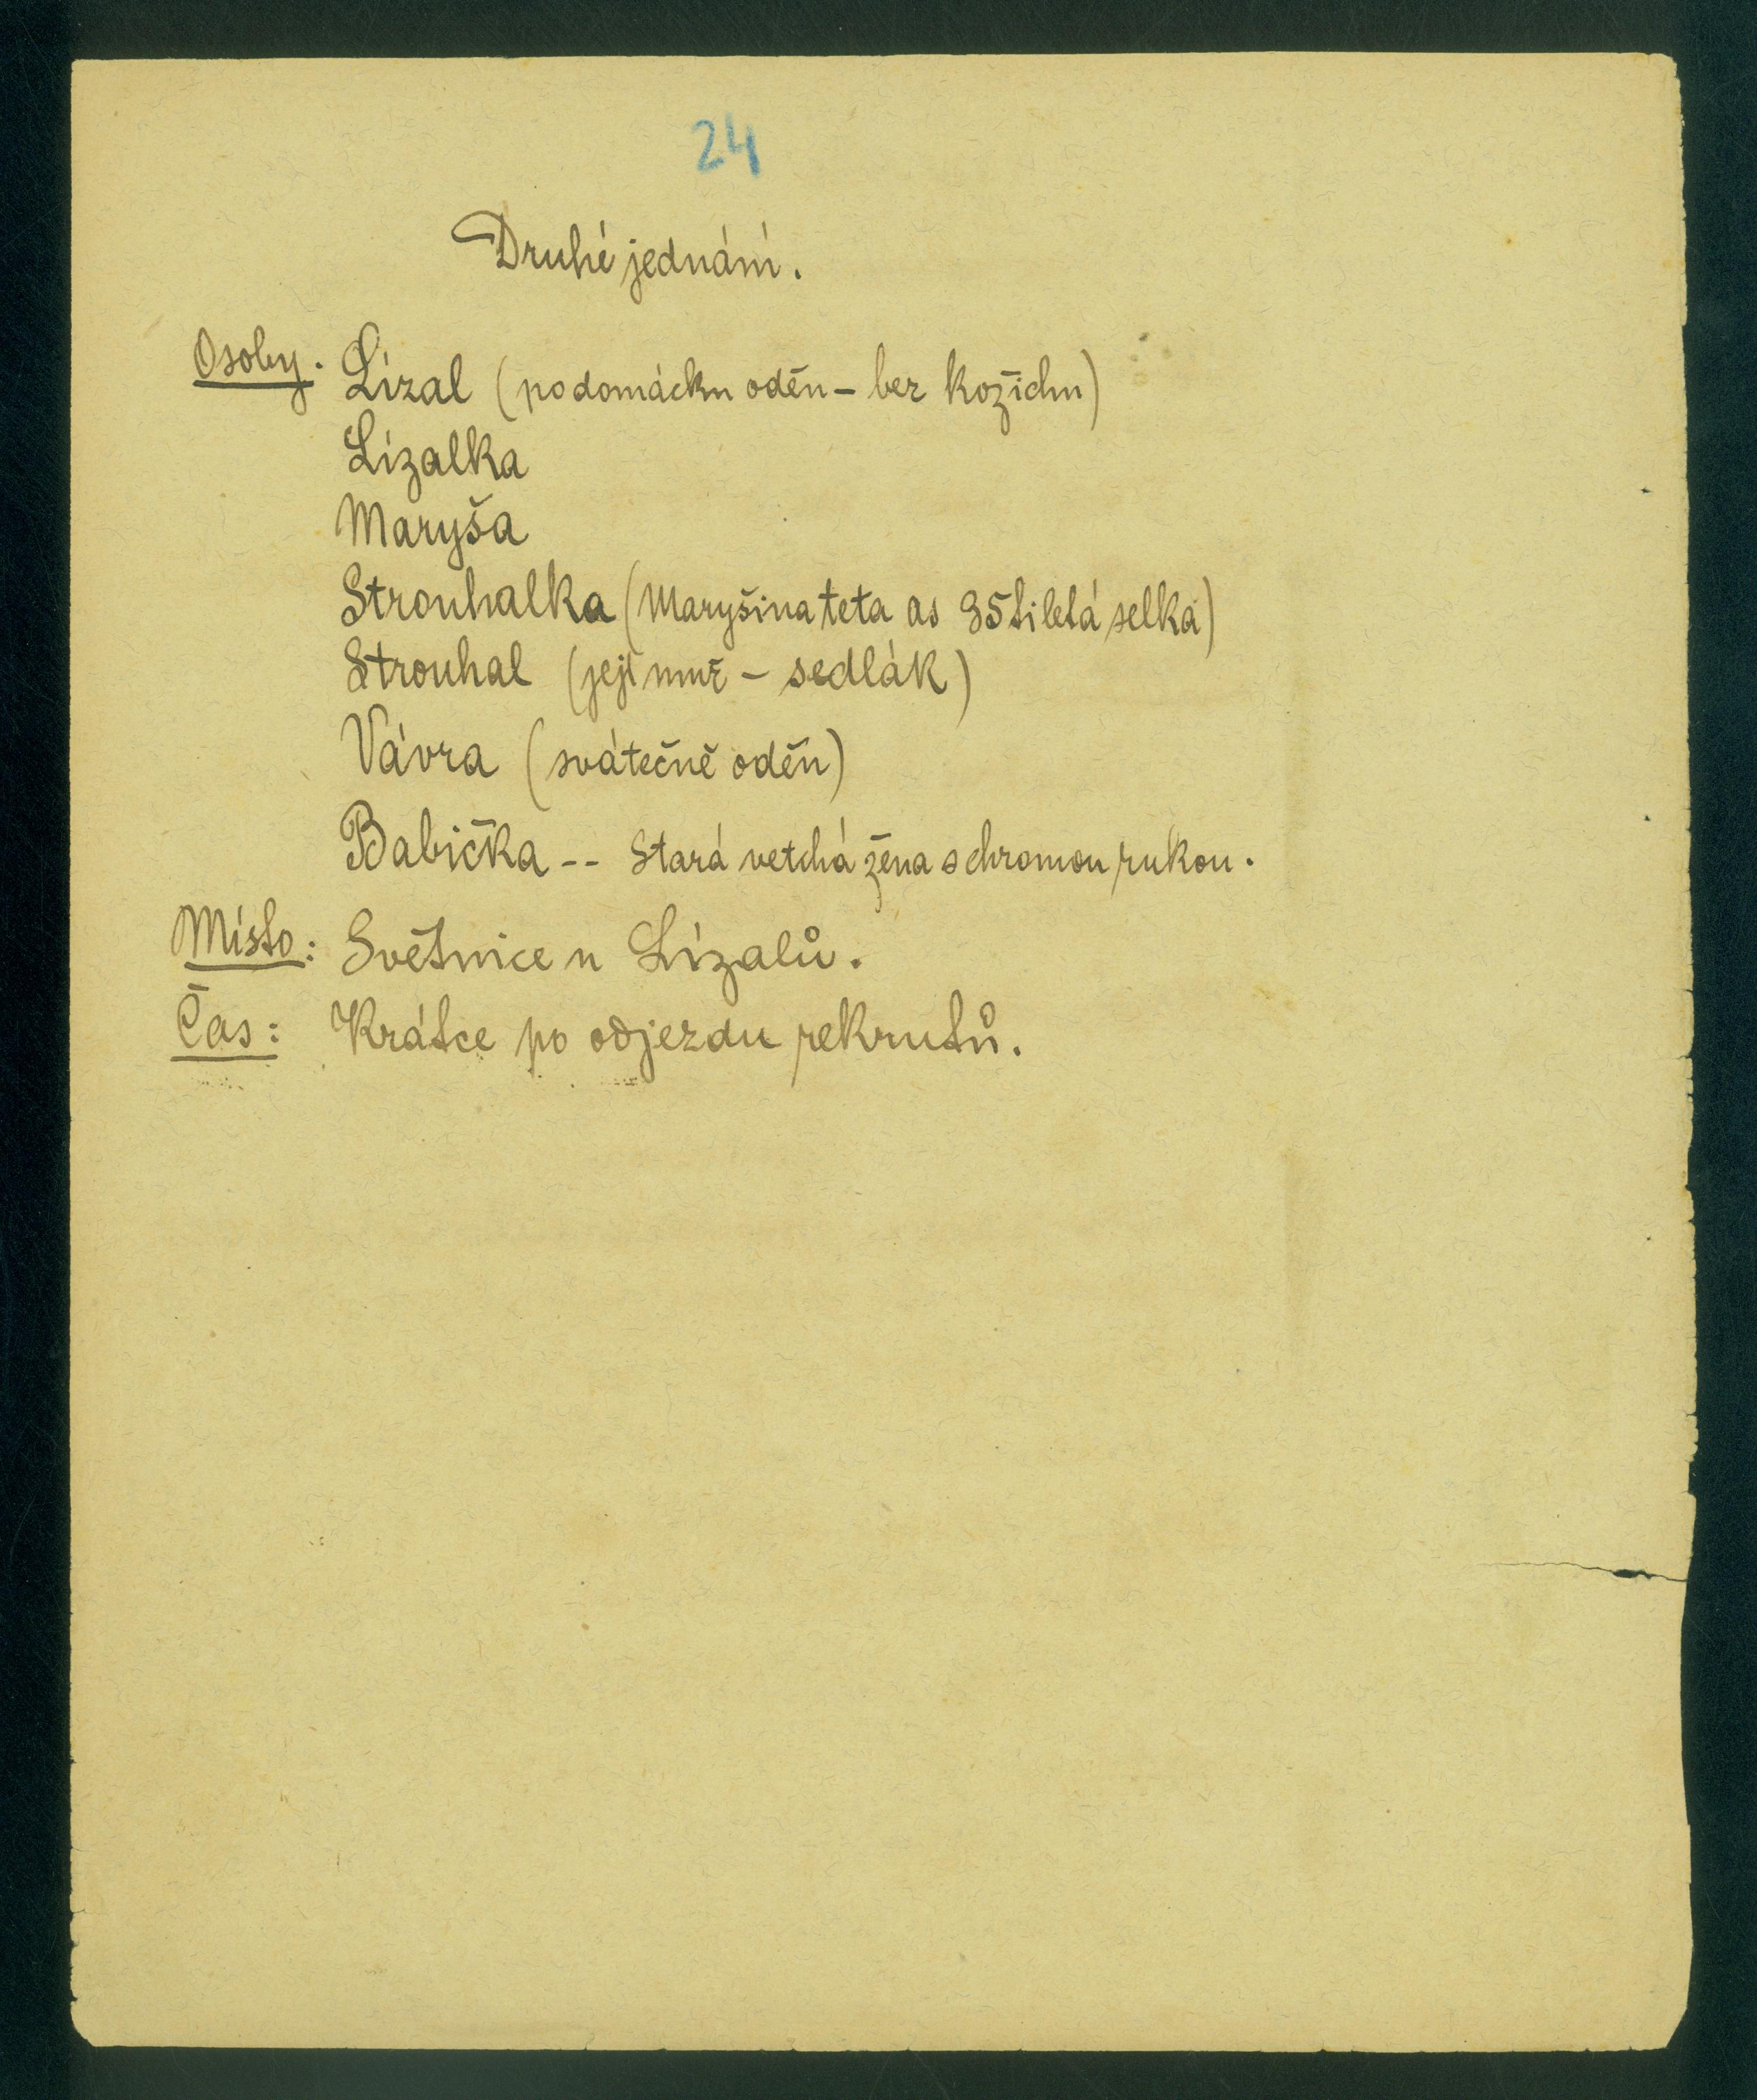 24
Druhé jednání.
Osoby. Lízal (podomácku oděn – bez kožichu)
Lízalka
Maryša
Strouhalka (Maryšina teta as 35tiletá selka)
Strouhal (její muž – sedlák)
Vávra (svátečně oděn)
Babička -- Stará vetchá žena s chromou rukou.
Místo: Světnice u Lízalů.
Čas: Krátce po odjezdu rekrutů.